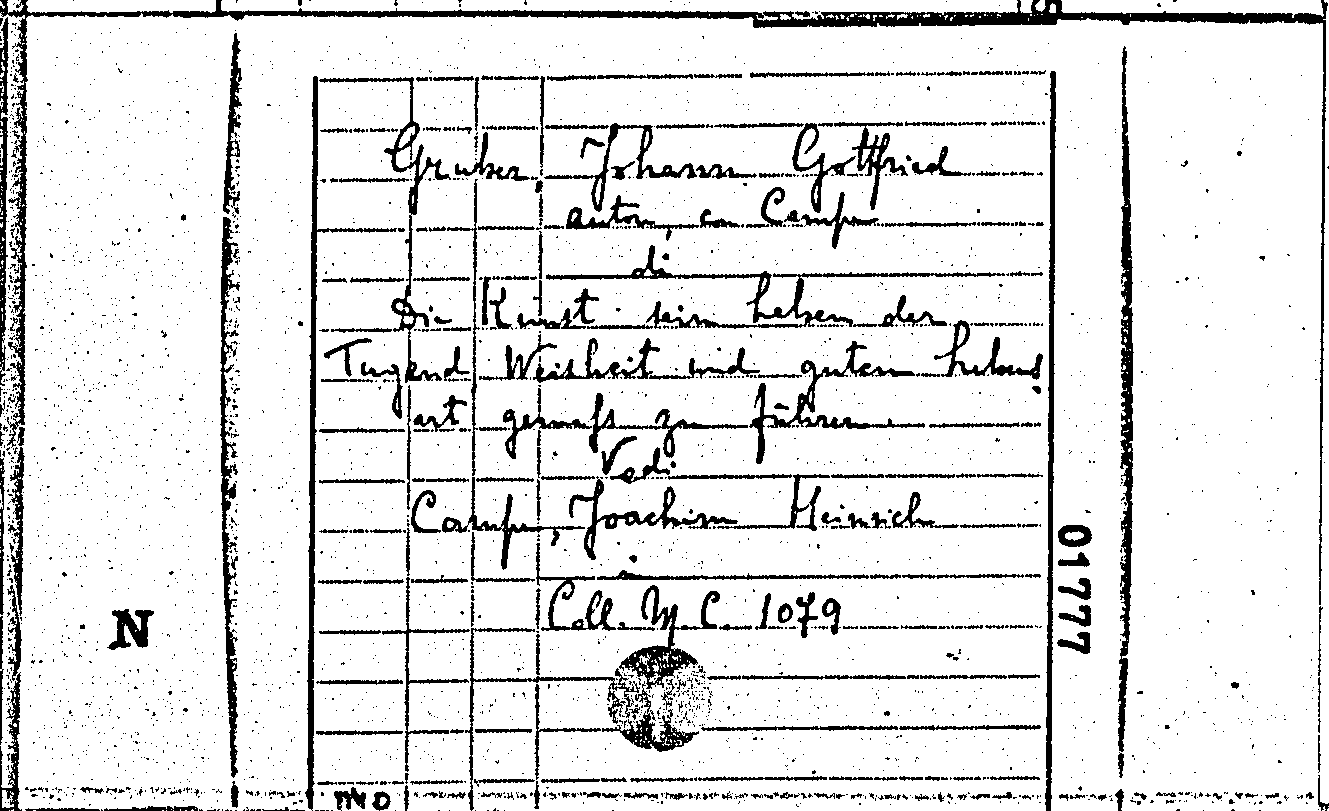 Gruber, Johann Gottfried
autore, con Campe
di
Die Kunst sein Leben der
Tugend Weisheit und guten Lebens
art gemäß zu führen.
Vedi
Campe, Joachim Heinrich
in
Coll. M. C. 1079
01777
N